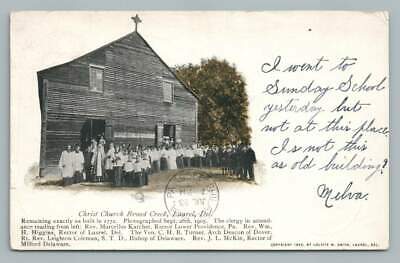 I went to
Sunday School
yesterday but
not at this place
Is not this
as old building?
Melva.
Christ Church Broad Creek, Laurel, Del.
Remaining exactly as built in 1772. Photographed Sept. 26th, 1905. The clergy in attend-
ance reading from left: Rev. Marcellus Karcher, Rector Lower Providence, Pa. Rev. Wm.
H. Higgins, Rector of Laurel, Del. The Ven. C. H. B. Turner, Arch Deacon of Dover.
Rt. Rev. Leighton Coleman, S. T. D., Bishop of Delaware. Rev. J. L. McKim, Rector of
Milford Delaware.
COPYRIGHT, 1905, BY W. SMITH, LAUREL, DEL.